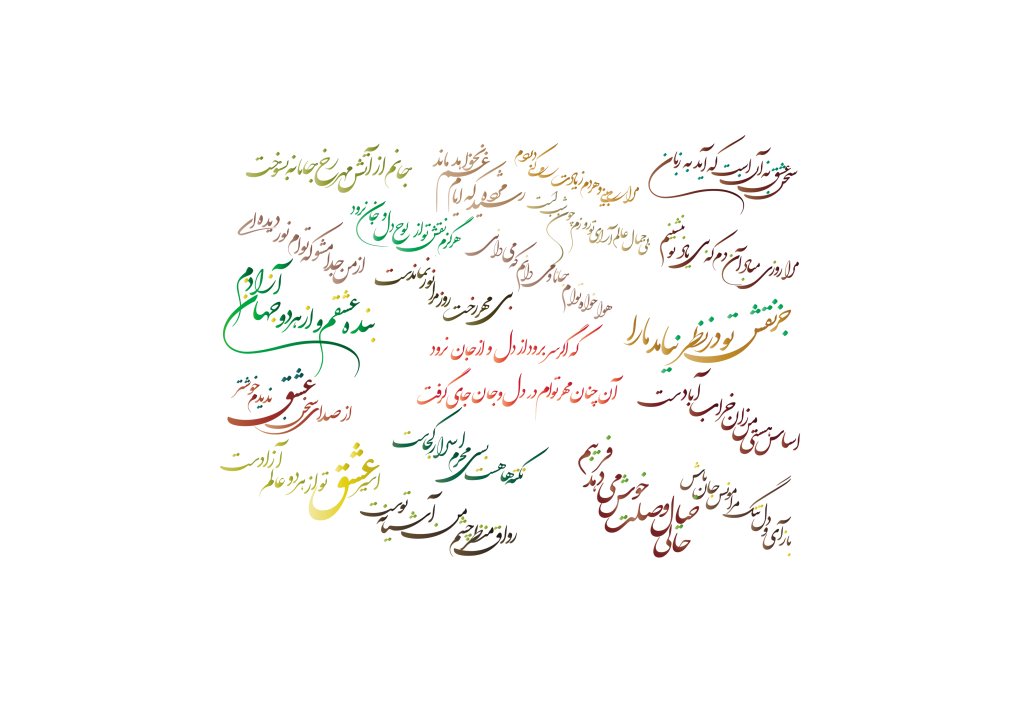 سخن عشق نه آن است که آید به زبان
مرا می‌بینی و هر دم زیادت می‌کنی دردم
رسید مژده که ایام غم نخواهد ماند
جانم از آتش مهر رخ جانانه بسوخت
مرا روزی مباد آن دم که بی یاد تو بنشینم
ای جمال عالم آرای تو
هرگزم نقش تو از لوح دل و جان نرود
از من جدا مشو که توام نور دیده‌ای
هواخواه توام جانا و می دانم که می دانی
بی مهر رخت روز مرا نور نماندست
بنده عشقم و از هر دو جهان آزادم
جز نقش تو در نظر نیامد ما را
که اگر سر برود از دل و از جان نرود
آن چنان مهر توام در دل و جان جای گرفت
اساس هستی من زان خراب آبادست
از صدای سخن عشق ندیدم خوشتر
نکته‌ها هست بسی محرم اسرار کجاست
اسیر عشق تو از هر دو عالم آزادست
بازآی و دل تنگ مرا مونس جان باش
حالی خیال وصلت خوش می دهد فریبم
رواق منظر چشم من آشیانه توست